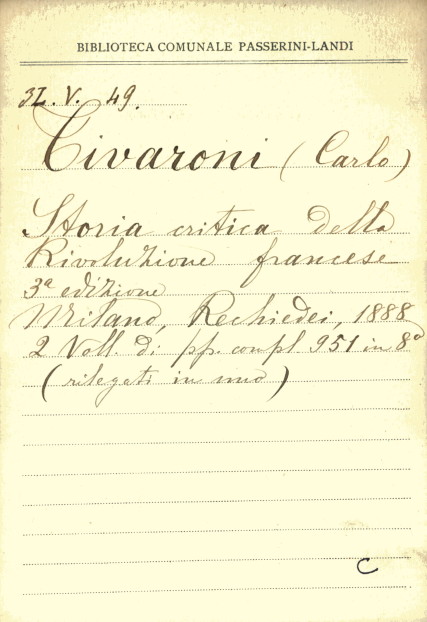 BIBLIOTECA COMUNALE PASSERINI-LANDI
3I. V. 49.
Tivaroni (Carlo)
Storia critica della
Rivoluzione francese
3ª edizione
Milano, Rechiedei, 1888
2 Voll. di pp. compl. 951 in 8º
(rilegati in uno)
C